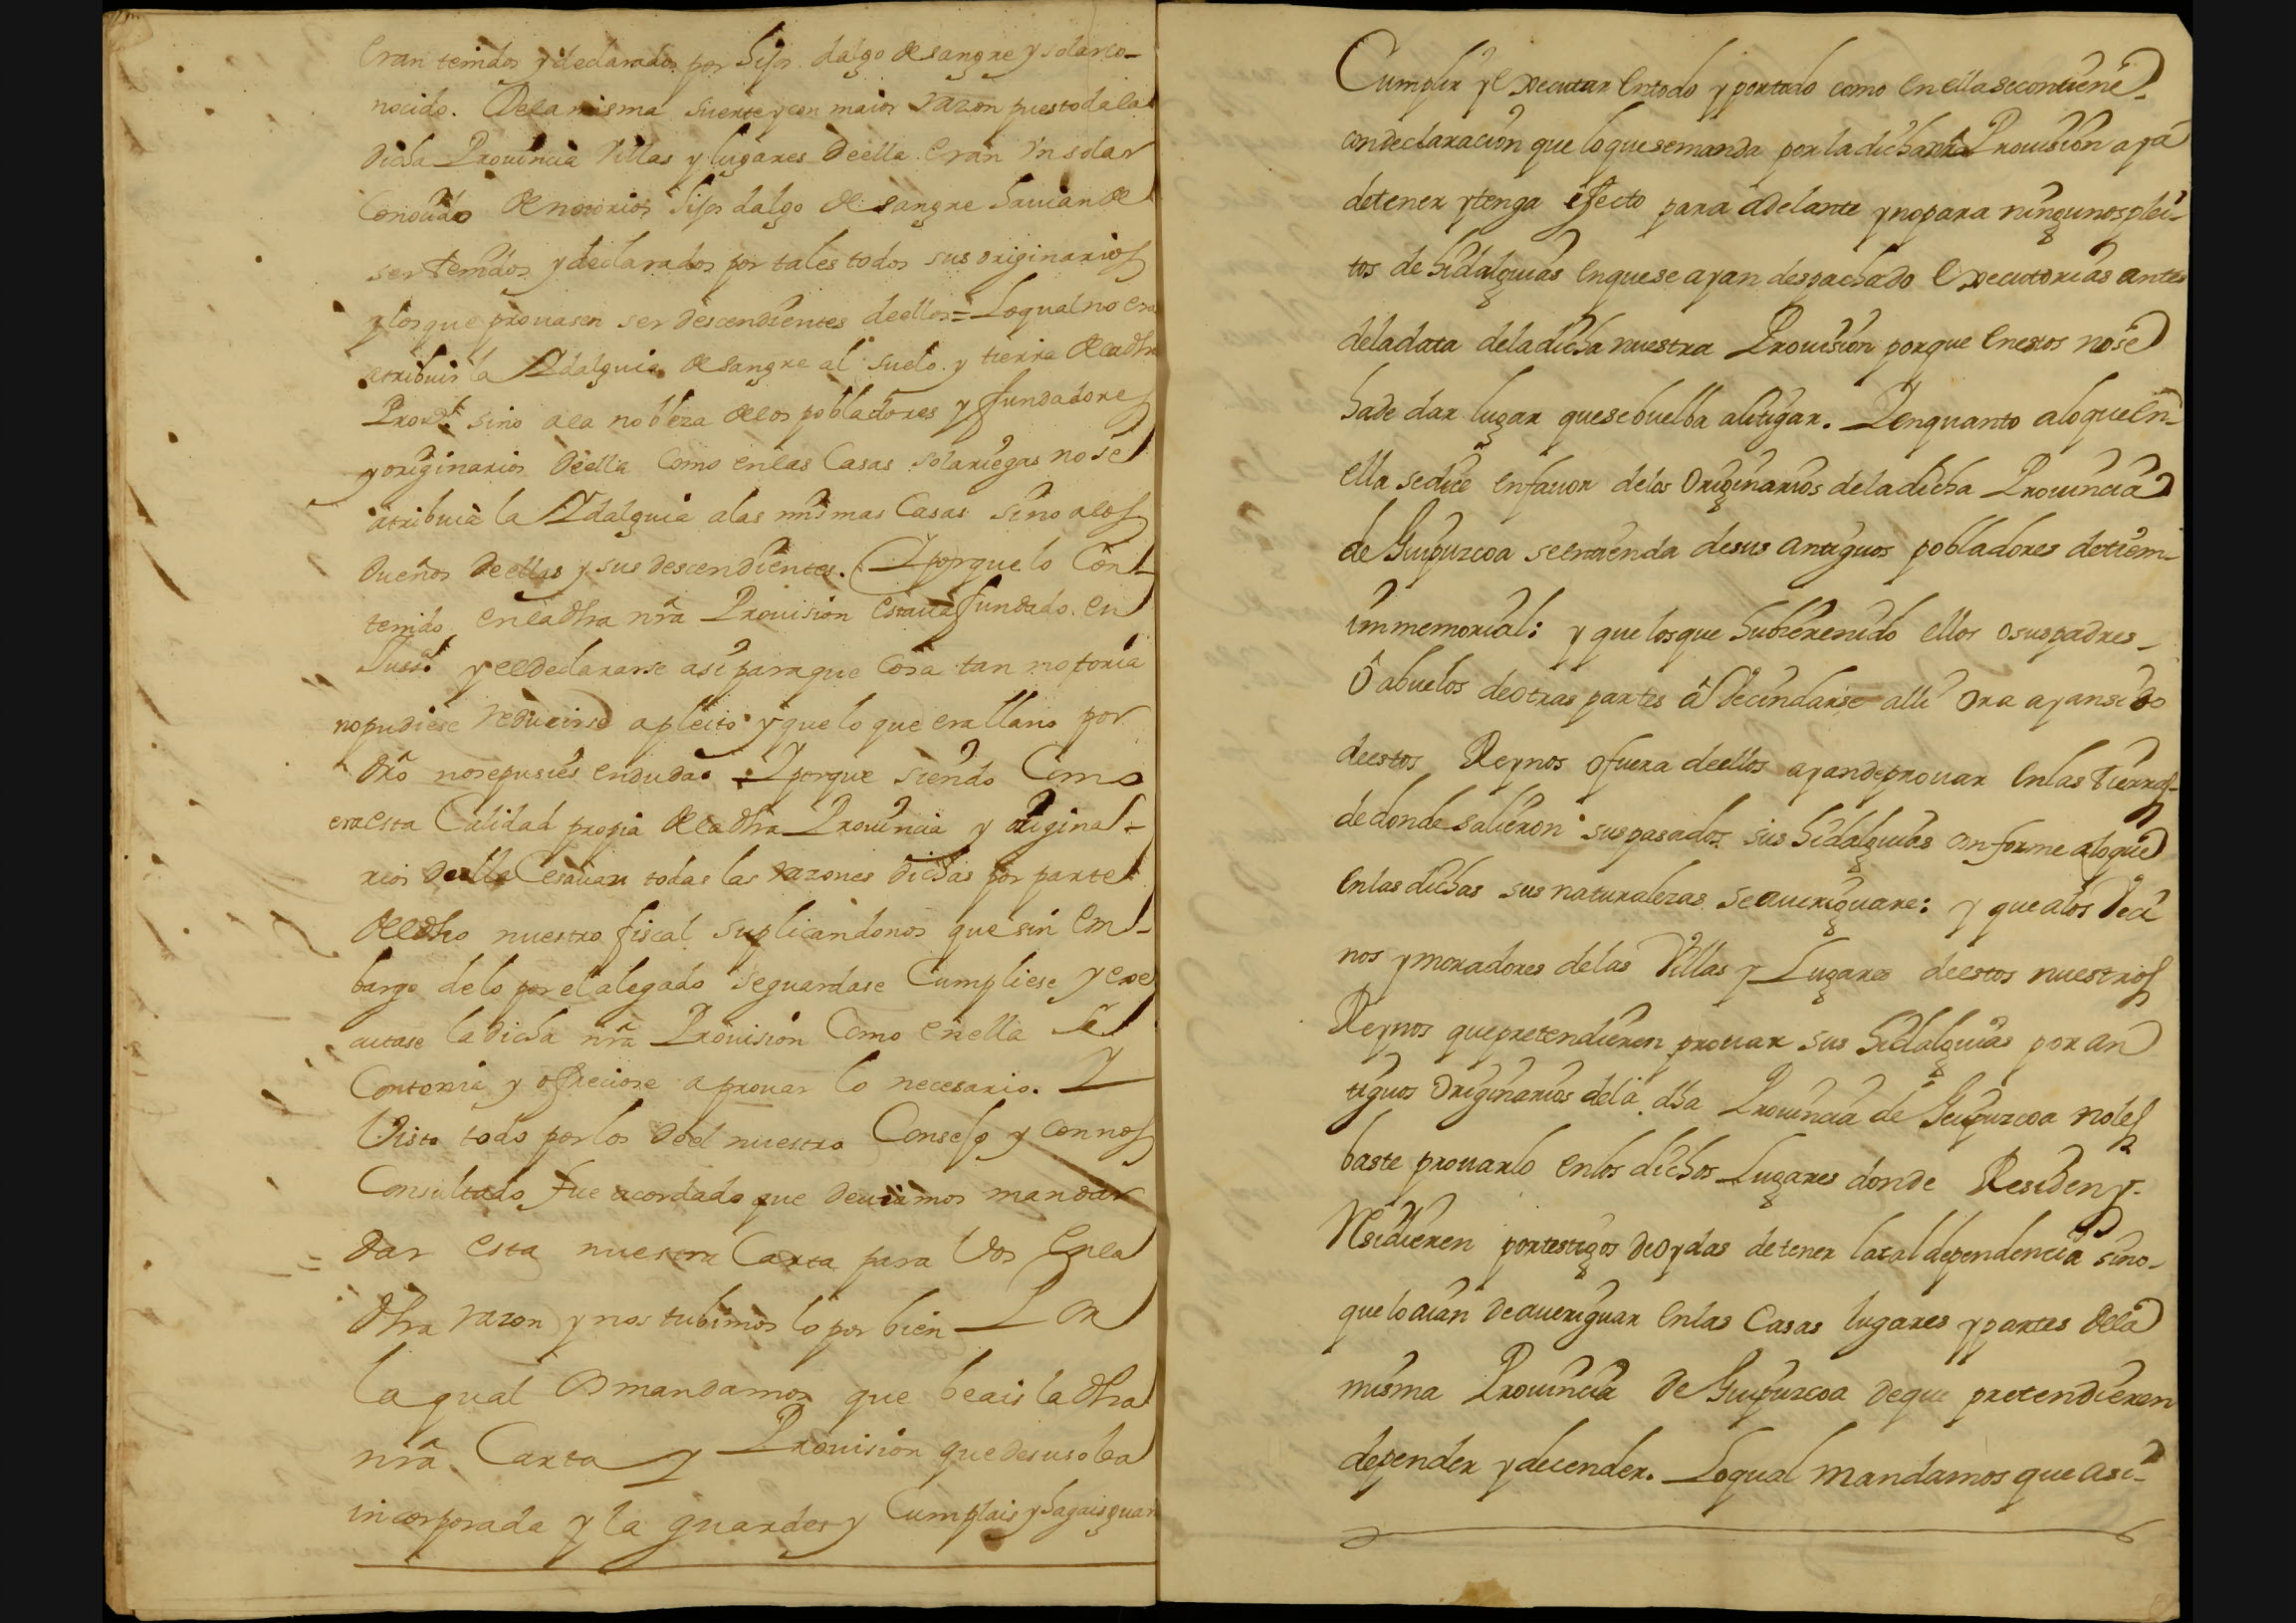 eran tenidos y declarados por hijos dalgo de sangre y solar co-
nocido. De la misma suerte y con maior razon pues toda la
dicha Prouincia Villas y lugares de ella eran Un solar
Conoçido de notorios hijos dalgo de sangre hauian de
ser tenidos y declarados por tales todos sus originarios
y los que prouasen ser descendientes de ellos = Lo qual no era
atribuir la Ydalguia de sangre al suelo y tierra de la dha
Prouª. sino a la nobleza de los pobladores y fundadores
y originarios de ella Como en las Casas solariegas no se
atribuia la Ydalguia a las mismas Casas sino a los
dueños de ellas y sus descendientes. Y porque lo Con-
tenido en la dha nrã Prouision estaua fundado en
Justª. y el declararse asi para que Cosa tan notoria
no pudiese reducirse a pleito y que lo que era llano por
drõ no se pusies en duda. Y porque siendo Como
era esta Calidad propia de la dha Prouincia y origina-
rios de ella Cesauan todas las razones dichas por parte
del dho nuestro fiscal suplicandonos que sin em-
bargo de lo por el alegado se guardase Cumpliese y exe
cutase la dicha nrã Prouision Como en ella se
Contenia y ofreciose a prouar lo necesario. Y
Visto todo por los del nuestro Consejo y con nos
Consultado fue acordado que deuiamos mandar
dar esta nuestra Carta para Vos en la
dha razon y nos tubimos lo por bien Por
la qual os mandamos que beais la dha
nrã Carta y Prouision que de suso ba
incorporada y la guardes y Cumplais y hagais guar
Cumplir y executar en todo y por todo como en ella se contiene
con declaracion que lo que se manda por la dicha nrã Prouision aya
de tener y tenga efecto para adelante y no para ningunos plei-
tos de hidalguias en que se ayan despachado executorias antes
de la data de la dicha nuestra Prouision porque en estos no se
ha de dar lugar que se buelba a litigar. Y en quanto a lo que en
ella se dice en fauor de los Originarios de la dicha Prouincia
de Guipuzcoa se entienda de sus antiguos pobladores de tiem-
immemorial: y que los que hubieren ido ellos o sus padres
ô abuelos de otras partes â Vecindarse alli ora ayan sido
de estos Reynos o fuera de ellos ayan de prouar en las tierras
de donde salieron sus pasados sus hidalguias conforme a lo que
en las dichas sus naturalezas se aueriguare: y que a los Veci
nos y moradores de las Villas y Lugares de estos nuestros
Reynos que pretendieren prouar sus hidalguias por an
tiguos Originarios de la dha Prouincia de Guipuzcoa no les
baste prouarlo en los dichos Lugares donde Residen y
Residieren por testigos de oydas de tener la tal dependencia sino
que lo aian de aueriguar en las Casas lugares y partes de la
misma Prouincia de Guipuzcoa de que pretendieren
depender y decender. Lo qual mandamos que asi